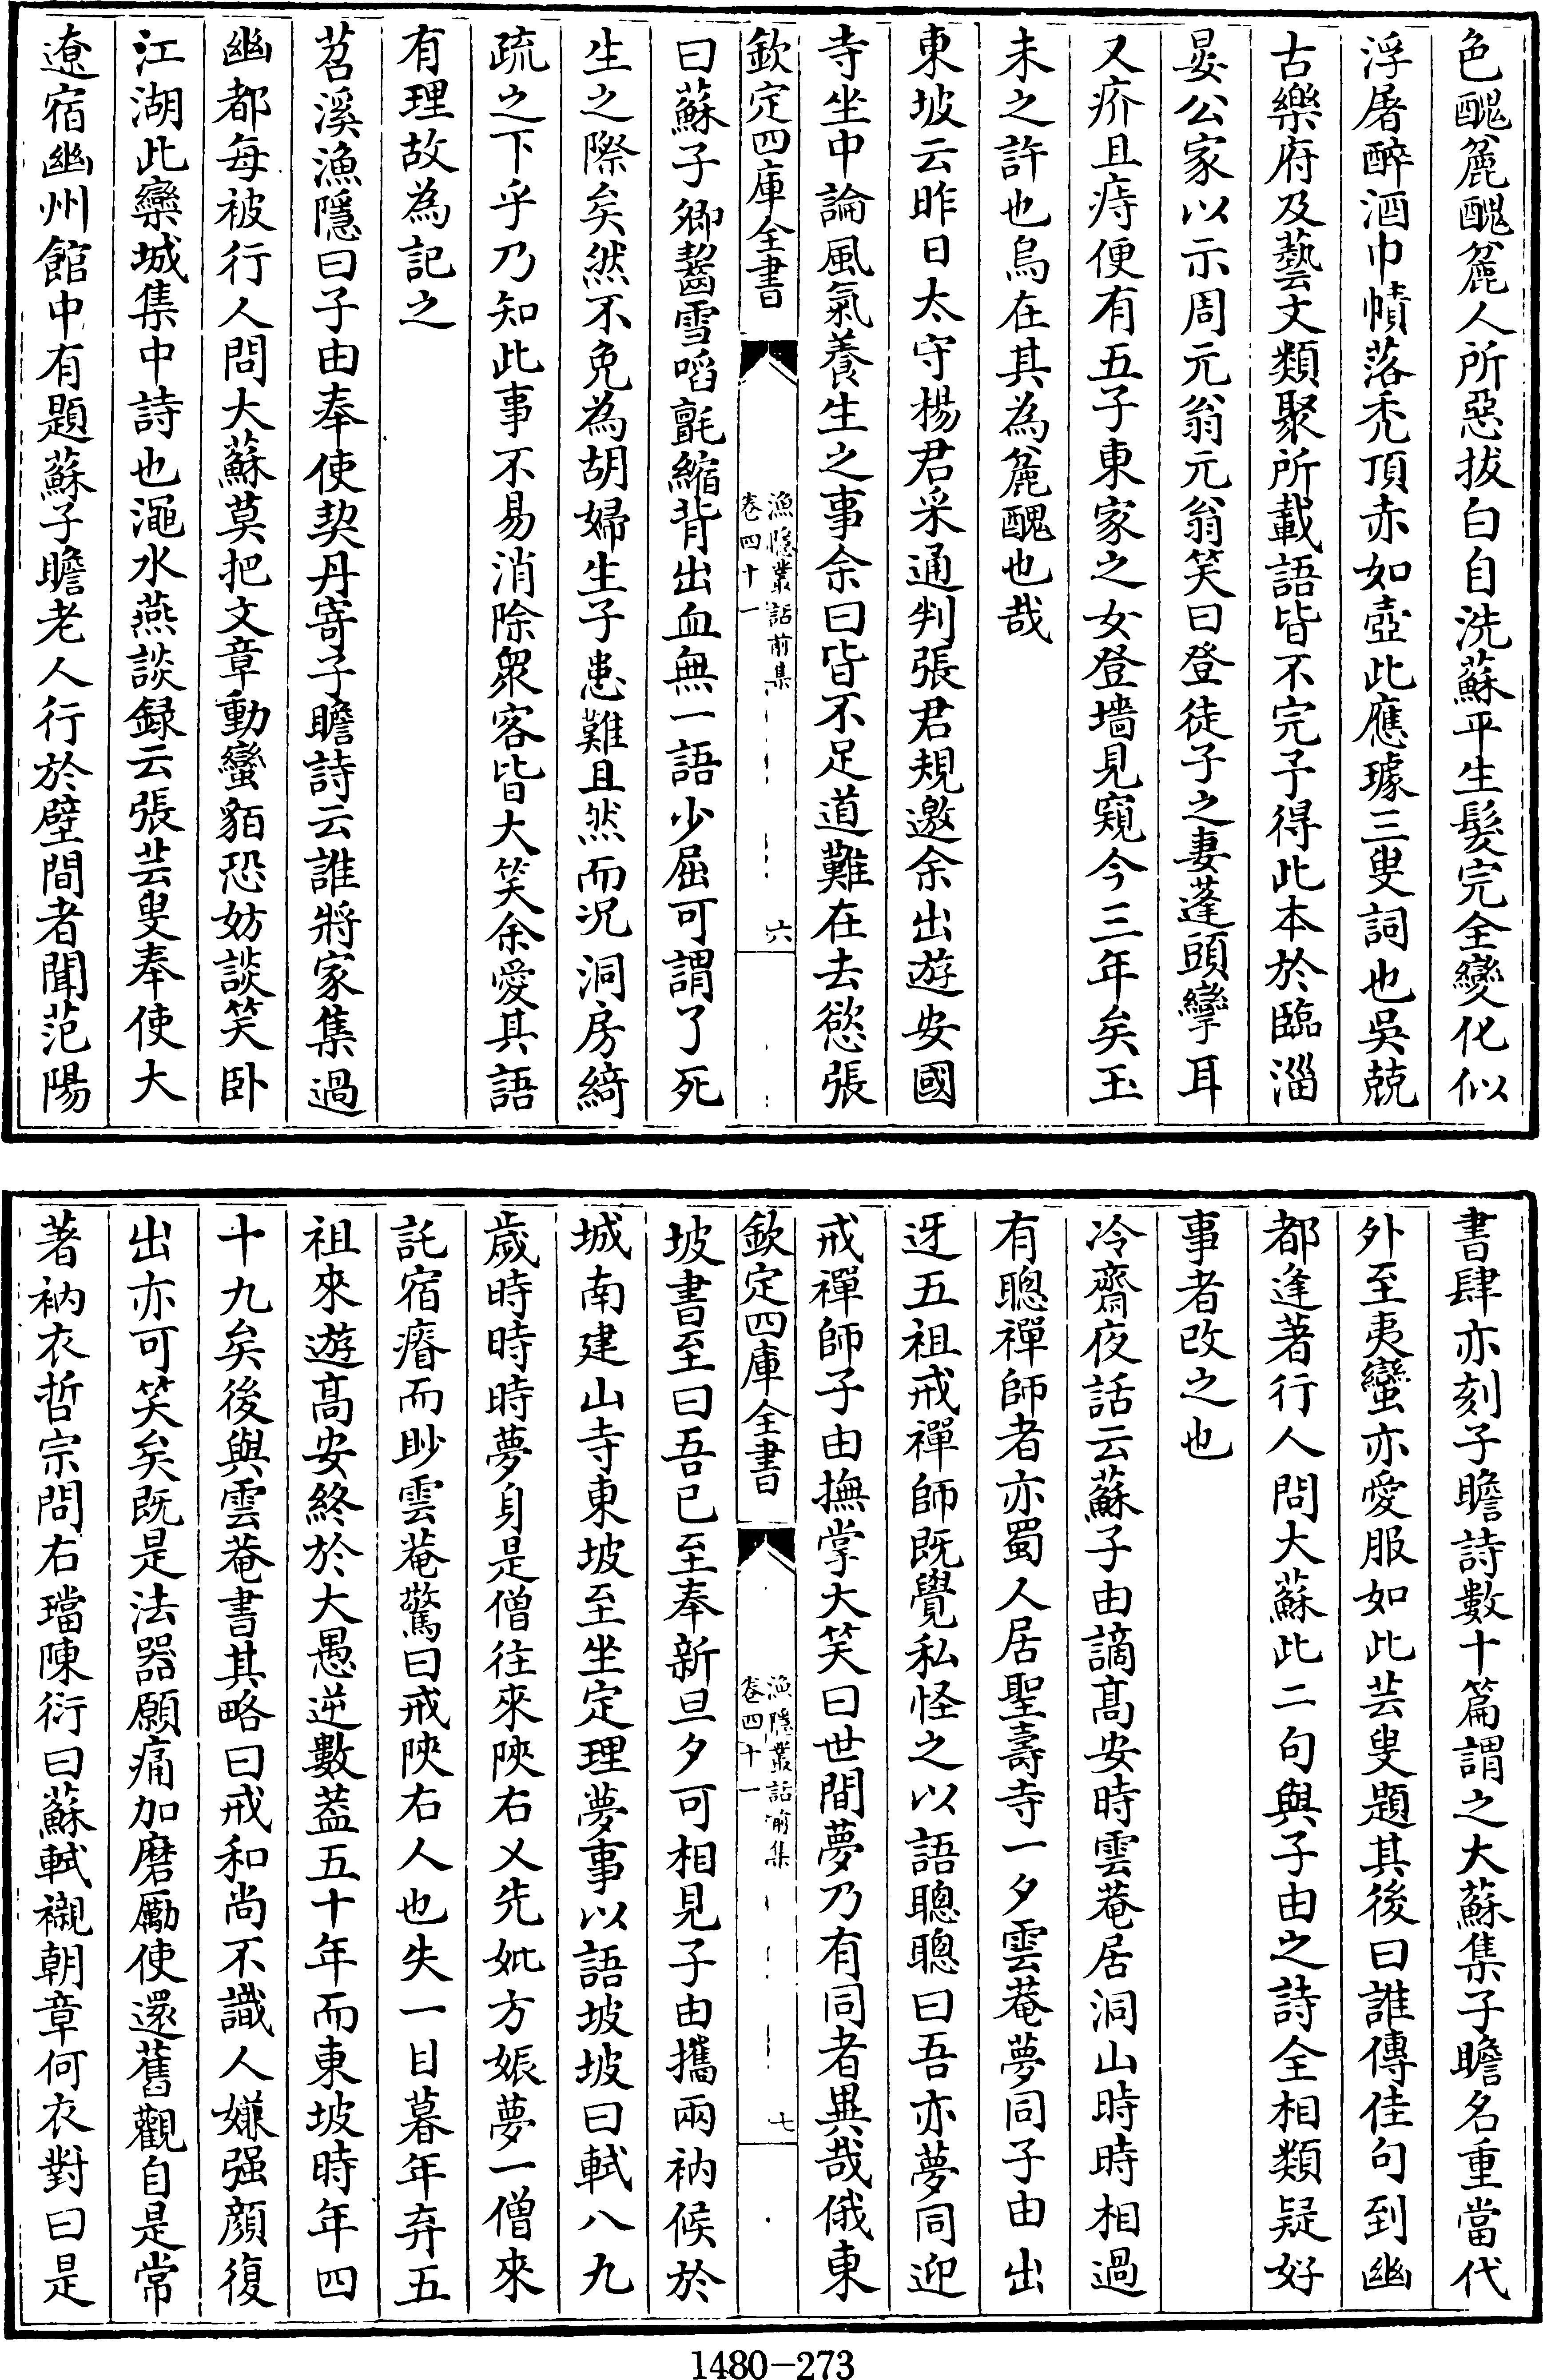 色醜麄醜麄人所惡拔白自洗蘇平生髪完全變化似
浮屠醉酒巾幘落秃頂赤如壺此應璩三叟詞也吳兢
古樂府及藝文類聚所載語皆不完予得此本於臨淄
晏公家以示周元翁元翁笑曰登徒子之妻蓬頭攣耳
又疥且痔便有五子東家之女登墻見窺今三年矣玉
未之許也烏在其為麄醜也哉
東坡云昨日太守楊君采通判張君規邀余出遊安國
寺坐中論風氣養生之事余曰皆不足道難在去慾張
欽定四庫全書
漁隱叢話前集
卷四十一
六
曰蘇子卿齧雪啗氈縮背出血無一語少屈可謂了死
生之際矣然不免為胡婦生子患難且然而况洞房綺
疏之下乎乃知此事不易消除衆客皆大笑余愛其語
有理故為記之
苕溪漁隱曰子由奉使契丹寄子瞻詩云誰將家集過
幽都每被行人問大蘇莫把文章動蠻貊恐妨談笑卧
江湖此欒城集中詩也澠水燕談録云張芸叟奉使大
遼宿幽州館中有題蘇子瞻老人行於壁間者聞范陽
書肆亦刻子瞻詩數十篇謂之大蘇集子瞻名重當代
外至夷蠻亦愛服如此芸叟題其後曰誰傳佳句到幽
都逢著行人問大蘇此二句與子由之詩全相類疑好
事者改之也
冷齋夜話云蘇子由謫髙安時雲菴居洞山時時相過
有聰禪師者亦蜀人居聖壽寺一夕雲菴夢同子由出
迓五祖戒禪師既覺私怪之以語聰聰曰吾亦夢同迎
戒禪師子由撫掌大笑曰世間夢乃有同者異哉俄東
欽定四庫全書
漁隱叢話前集
卷四十一
七
坡書至曰吾已至奉新旦夕可相見子由攜兩衲候於
城南建山寺東坡至坐定理夢事以語坡坡曰軾八九
歲時時時夢身是僧往來陜右又先妣方娠夢一僧來
託宿瘠而眇雲菴驚曰戒陜右人也失一目暮年弃五
祖來遊髙安終於大愚逆數葢五十年而東坡時年四
十九矣後與雲菴書其略曰戒和尚不識人嫌强顔復
出亦可笑矣既是法器願痛加磨勵使還舊觀自是常
著衲衣哲宗問右璫陳衍曰蘇軾襯朝章何衣對曰是
1480-273